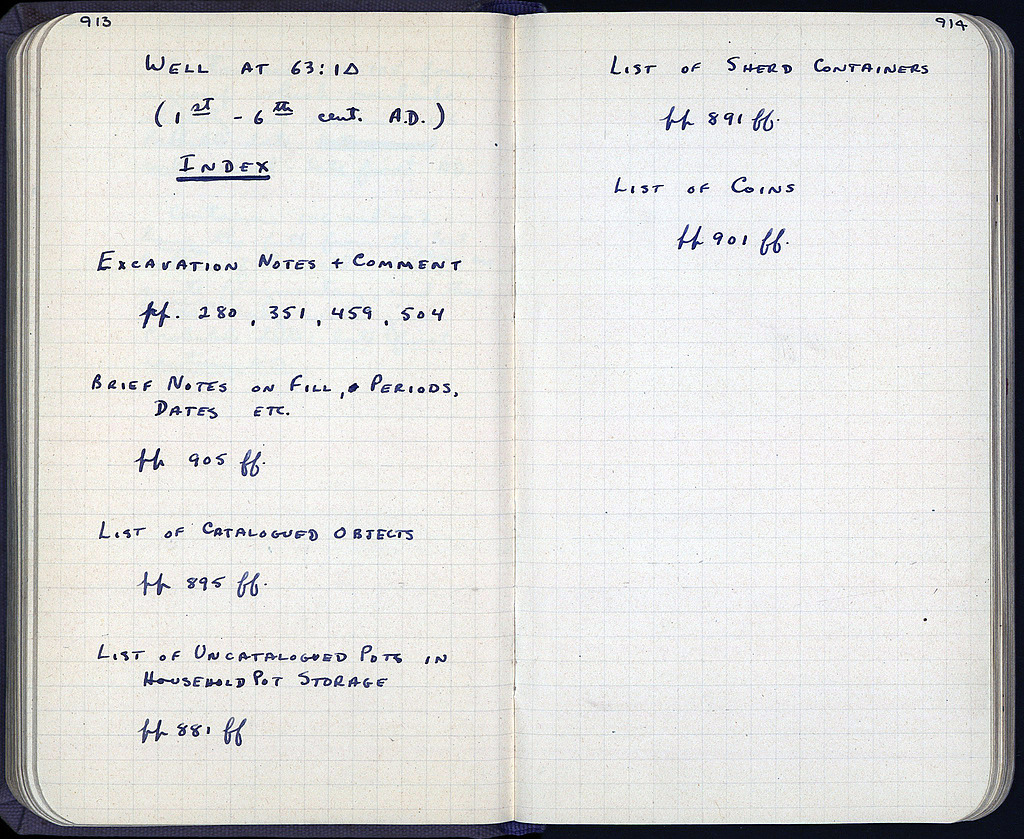 913
WELL AT 63:1Δ
(1st - 6th cent. A.D.)
INDEX
EXCAVATION NOTES + COMMENT
pp. 280, 351, 459, 504
BRIEF NOTES ON FILL, PERIODS,
DATES ETC.
pp 905 ff.
LIST OF CATALOGUED OBJECTS
pp 895 ff.
LIST OF UNCATALOGUED POTS IN
HOUSEHOLD POT STORAGE
pp 881 ff
914
LIST OF SHERD CONTAINERS
pp 891 ff.
LIST OF COINS
pp 901 ff.